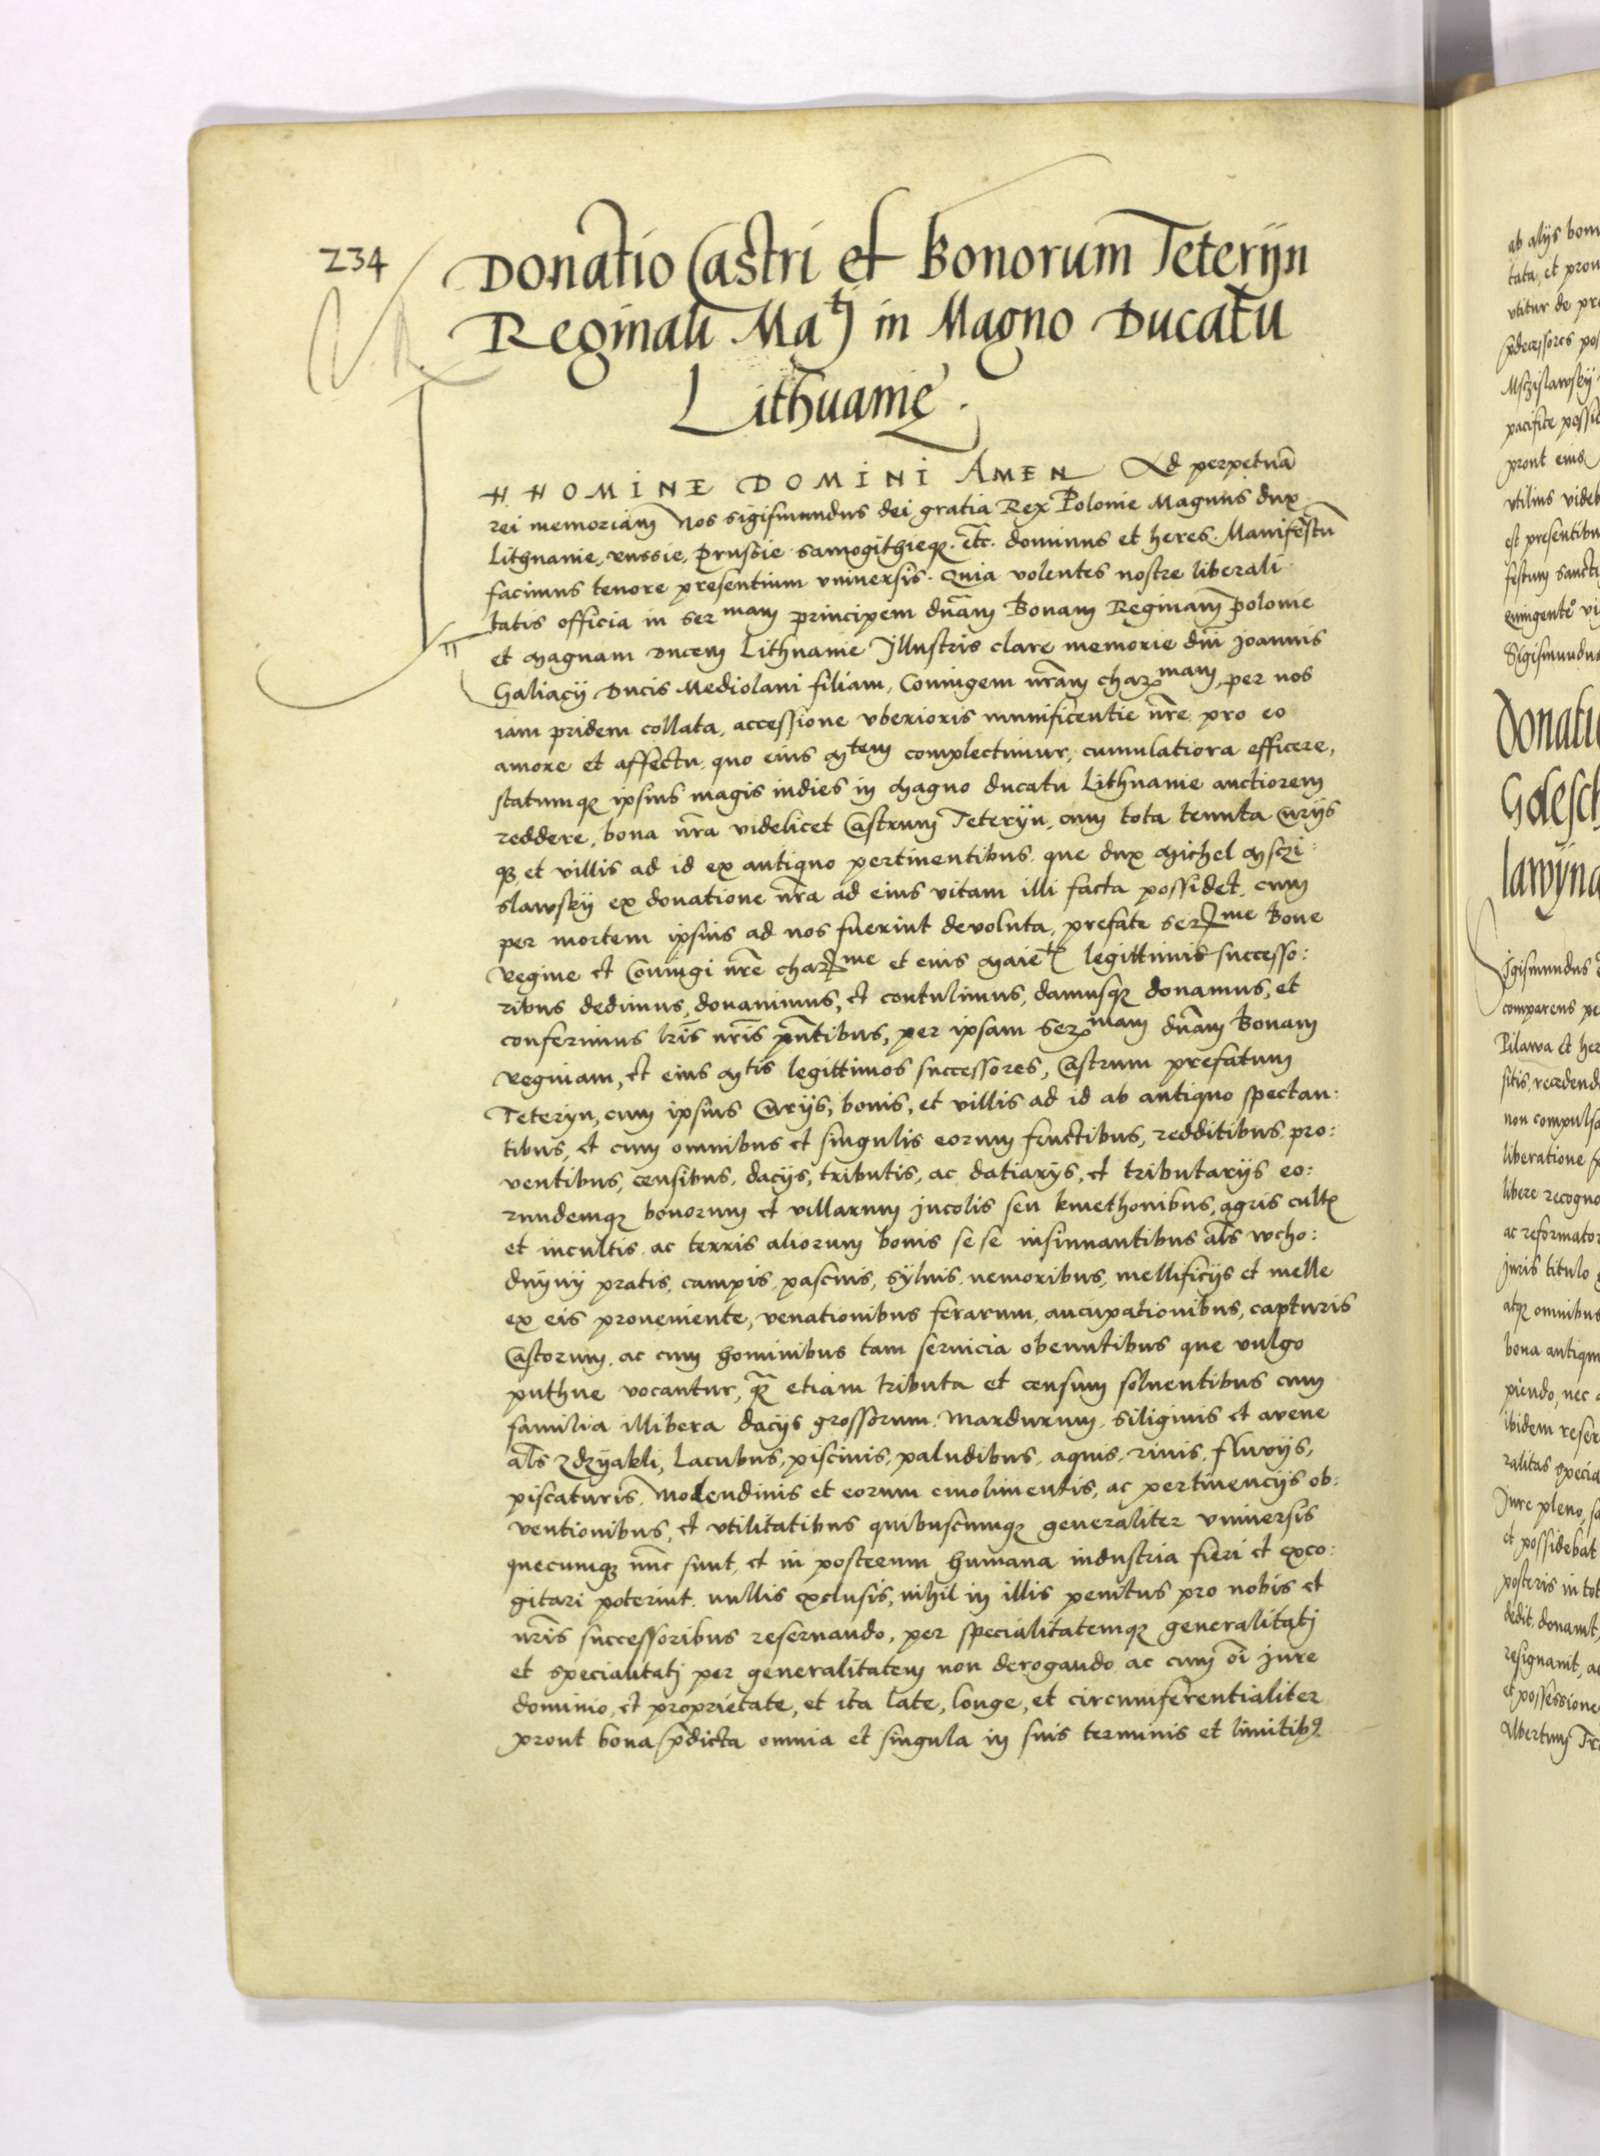 234
Donatio Castri et Bonorum Teteryn
Reginali Matj in Magno Ducatu
Lithuanie.
IN NOMINE DOMINI AMEN Ad perpetuā
rei memoriam Nos Sigismundus dei gratia Rex Polonie Magnus dux
Lithuanie, Russie, Prussie Samogithieqȝ. etc. dominus et heres. Manifestū
facimus tenore presentium vniversis. Quia volentes nostre liberali
tatis officia in Sermam principem dnam Bonam Reginam polonie
et Magnam Ducem Lithuanie Jllustris clare memorie dni Joannis
Galiacij Ducis Mediolani filiam, Coniugem nram charmam, per nos
iam pridem collata, accessione vberioris munificentie nre pro eo
amore et affectu, quo eius Mtem complectimur, cumulatiora efficere,
statumqȝ ipsius magis indies in Magno ducatu Lithuanie auctiorem
reddere, bona nra videlicet Castrum Teteryn, cum tota tenuta Curijs
qȝ et villis ad id ex antiquo pertinentibus. que dux Michel Msczi:
slawskij ex donatione nra ad eius vitam illi facta possidet, cum
per mortem ipsius ad nos fuerint devoluta, prefate Serme Bone
Regine et Coniugi nre charme et eius Maietj legittimis successo:
ribus dedimus, donavimus, et contulimus, damusqȝ donamus, et
conferimus lris nris pntibus, per ipsam Sermam dnam Bonam
Reginam, et eius Mtis legittimos successores, Castrum prefatum
Teteryn, cum ipsius Curijs, bonis, et villis ad id ab antiquo spectan:
tibus, et cum omnibus et singulis eorum fructibus, redditibus, pro:
ventibus, censibus, dacijs, tributis, ac datiarijs, et tributarijs eo:
rundemqȝ bonorum et villarum jncolis seu kmethonibus, agris cultis
et incultis, ac terris aliorum bonis sese insinuantibus als wcho:
dnijnij pratis, campis, pascuis, sylvis, nemoribus, mellificijs et melle
ex eis proveniente, venationibus ferarum, aucupationibus, capturis
Castorum, ac cum hominibus tam servicia obeuntibus que vulgo
puthne vocantur, qȝ etiam tributa et censum solventibus cum
familia illibera dacijs grossorum. Mardurum. Siliginis et avene
als zdzyakli, Lacubus, piscinis, paludibus, aquis, rivis, fluvijs,
piscaturis, Molendinis et eorum emolimentis, ac pertinencijs ob:
ventionibus, et vtilitatibus quibuscumqȝ generaliter vniversis
quecumqȝ nunc sunt, et in posterum humana industria fieri et exco:
gitari poterint, nullis exclusis, nihil in illis penitus pro nobis et
nris successoribus reservando, per specialitatemqȝ generalitatj
et specialitatj per generalitatem non derogando, ac cum oi jure
dominio, et proprietate, et ita late, longe, et circumferentialiter
prout bona pdicta omnia et singula in suis terminis et limitibȝ